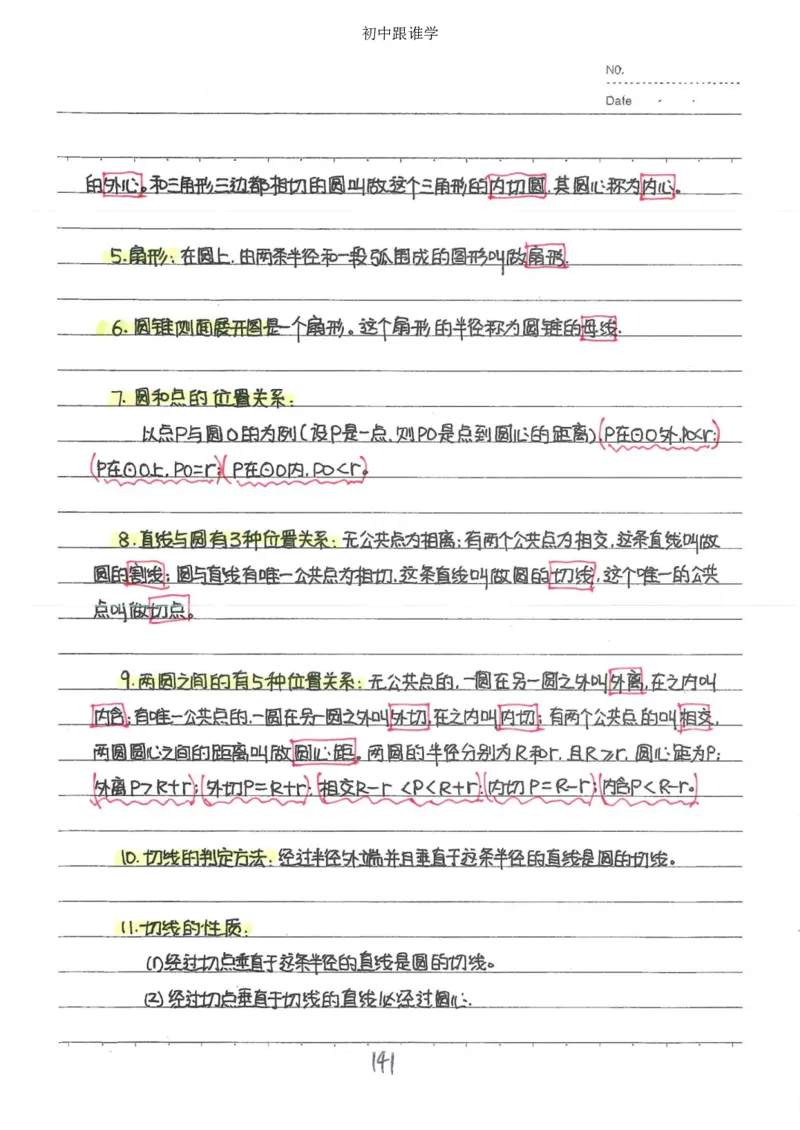 初中跟谁学
NO.
Date
的外心。和三角形三边都相切的圆叫做这个三角形的内切圆,其圆心称为内心。
5.扇形:在圆上,由两条半径和一段弧围成的图形叫做扇形.
6.圆锥侧面展开图是一个扇形。这个扇形的半径称为圆锥的母线.
7.圆和点的位置关系:
以点P与圆O的为例(设P是一点,则PO是点到圆心的距离),P在⊙O外,PO<r;
P在⊙O上,PO=r;P在⊙O内,PO<r。
8.直线与圆有3种位置关系:无公共点为相离;有两个公共点为相交,这条直线叫做
圆的割线;圆与直线有唯一公共点为相切,这条直线叫做圆的切线,这个唯一的公共
点叫做切点。
9.两圆之间的有5种位置关系:无公共点的,一圆在另一圆之外叫外离,在之内叫
内含;有唯一公共点的,一圆在另一圆之外叫外切,在之内叫内切;有两个公共点的叫相交,
两圆圆心之间的距离叫做圆心距。两圆的半径分别为R和r,且R≥r,圆心距为P;
外离P>R+r;外切P=R+r;相交R-r<P<R+r;内切P=R-r;内含P<R-r。
10.切线的判定方法:经过半径外端并且垂直于这条半径的直线是圆的切线。
11.切线的性质:
(1)经过切点垂直于这条半径的直线是圆的切线。
(2)经过切点垂直于切线的直线必经过圆心.
141